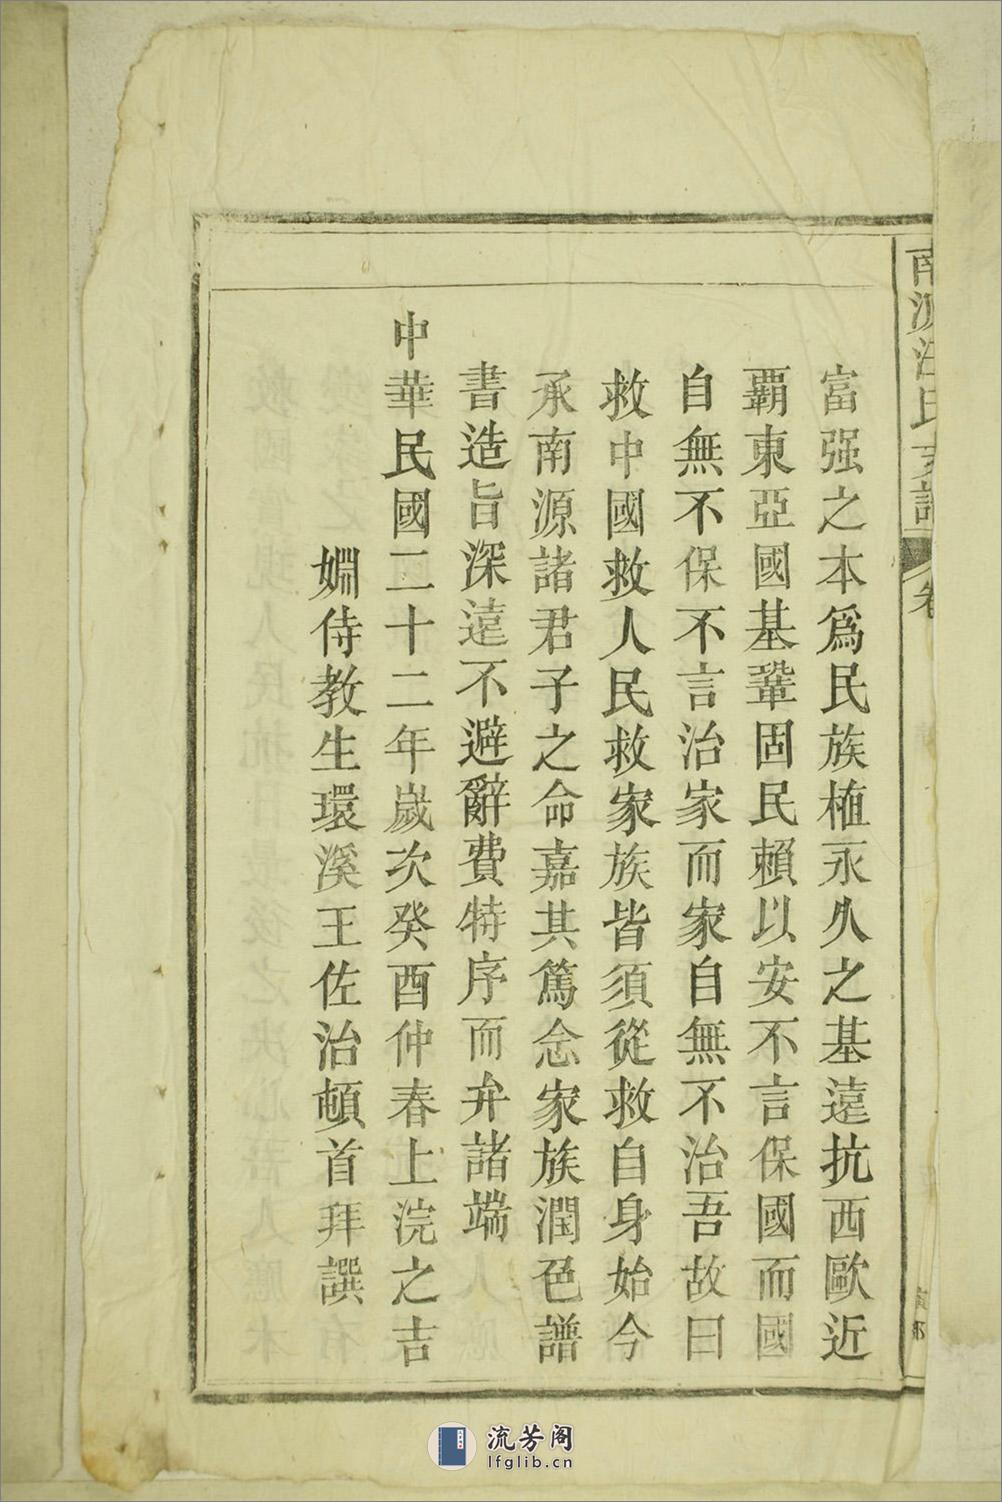 富强之本爲民族植永久之基遠抗西歐近
覇東亞國基鞏固民賴以安不言保國而國
自無不保不言治家而家自無不治吾故曰
救中國救人民救家族皆須從救自身始今
承南源諸君子之命嘉其篤念家族潤色譜
書造旨深遠不避辭費特序而弁諸端
中華民國二十二年歲次癸酉仲春上浣之吉
婣侍教生環溪王佐治頓首拜譔
南源汪氏支譜
卷
流芳阁
lfglib.cn